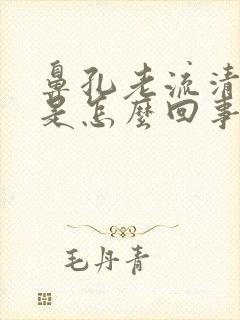 鼻孔老流清
是怎麼回事
毛丹青